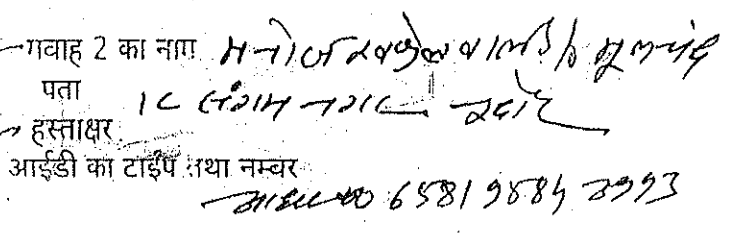 गवाह 2 का नाम मनोज खण्डेलवाल S/o मूलचंद
पता 1C संगम नगर इंदौर
हस्ताक्षर
आईडी का टाईप तथा नम्बर
आधार 6581 9584 3993